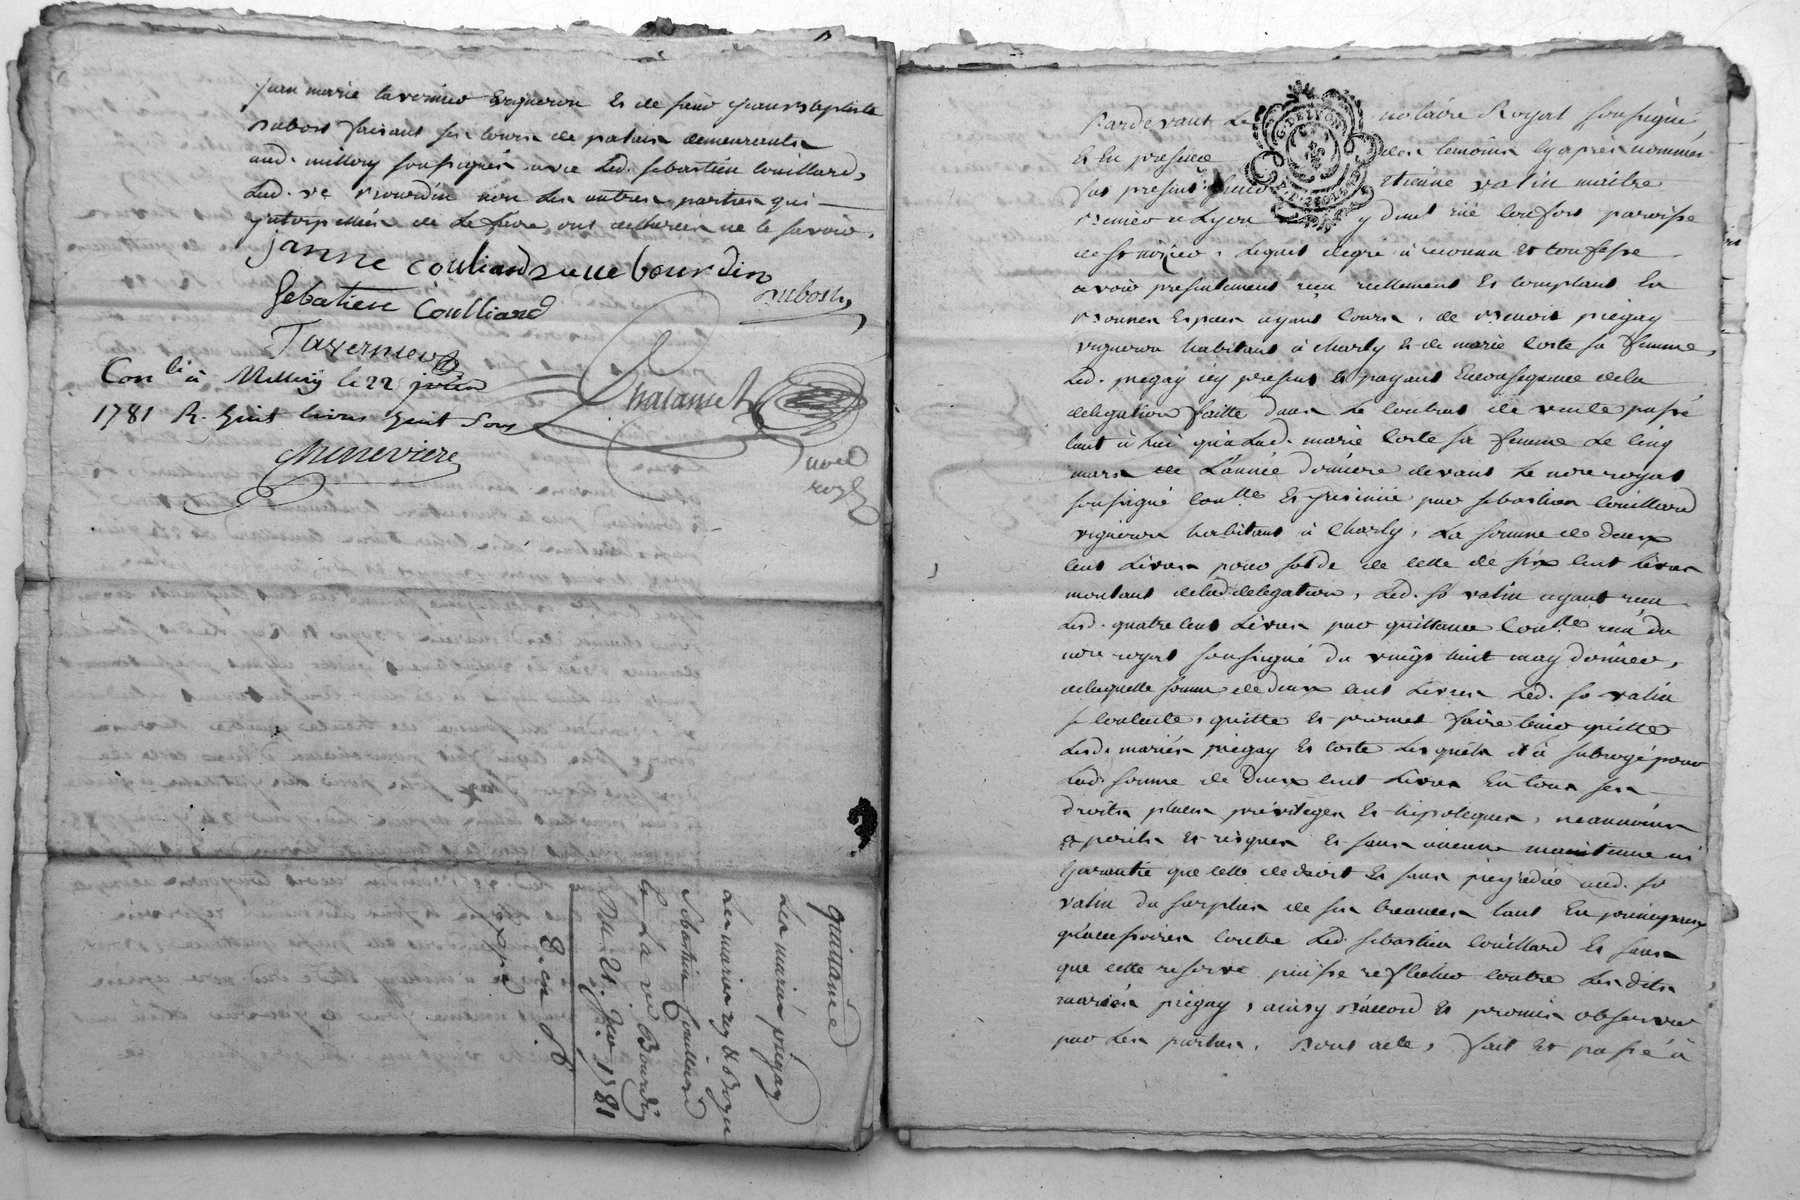 jean marie tavernier vigneron et de sieur jean Baptiste
Dubost faisant ses cours de palais demeurants
aud. millery soussignés avec Led. sebastien Couillard,
Lad. ve Bourdin non Les autres parties qui
jnterpellées de Le faire ont declarées ne le savoir.
janne couliard veuve bourdin
Dubost
Sebatien Coulliard
Tavernier
Con.lé à Millery le 22 juin
1781 R. huit livres huit sous
Chenevière
Chalamel
Duvel
quittance
Les mariés piegay
Les mariés rey &
Sebastien Couillard
La ve Bourdin
Du 21. juin 1781
E. en p.
Pardevant Le notaire Royal soussigné
Et En presence des temoins cy apres nommés
fut present sieur Etienne valin maitre
à Lyon y demt rüe Confort paroisse
de st nizier, Lequel degré à reconnu Et confesse
avoir presentement reçu reellement Et comptant En
Bonnes Especes ayant cours, de Benoit piegay
vigneron habitant à charly Et de marie Coste sa femme,
Led. piegay icy present Et payant En consequence de la
delegation faitte dans Le contrat de vente passé
tant à lui qu'a Lad. marie Coste sa femme Le cinq
mars de L'année derniere devant Le nore royal
soussigné conllé Et jnsinüé par sebastien Couillard
vigneron habitant à Charly, La somme de deux
cent Livres pour solde de celle de six cent Livres
montant de lad. delegation, Led. sr valin ayant reçu
Lesd. quatre cent Livres par quittance conllée reçu du
nore royal soussigné du vingt huit may dernier,
de laquelle somme de deux cent Livres Led. sr valin
se contente, quitte Et promet faire tenir quitte
Lesd. mariés piegay Et Coste Lesquels il à subrogé pour
Lad. somme de deux cent Livres En tous ses
droits places privileges Et hipoteques, neanmoins
a perils Et risques Et sans aucune maintenue ni
garantie que celle de droit Et sans prejudice aud. sr
valin du surplus de ses creances tant En principaux
qu'accessoires contre Led. sebastien Couillard Et sans
que cette reserve puisse reflechir contre Lesdits
mariés piegay, ainsy d'accord Et promis observer
par Les parties. Dont acte, fait Et passé à
G. DE LYON